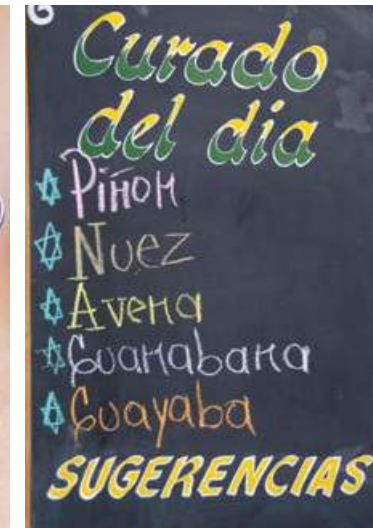 Curado
del día
Piñon
Nuez
Avena
Guanabana
Guayaba
SUGERENCIAS